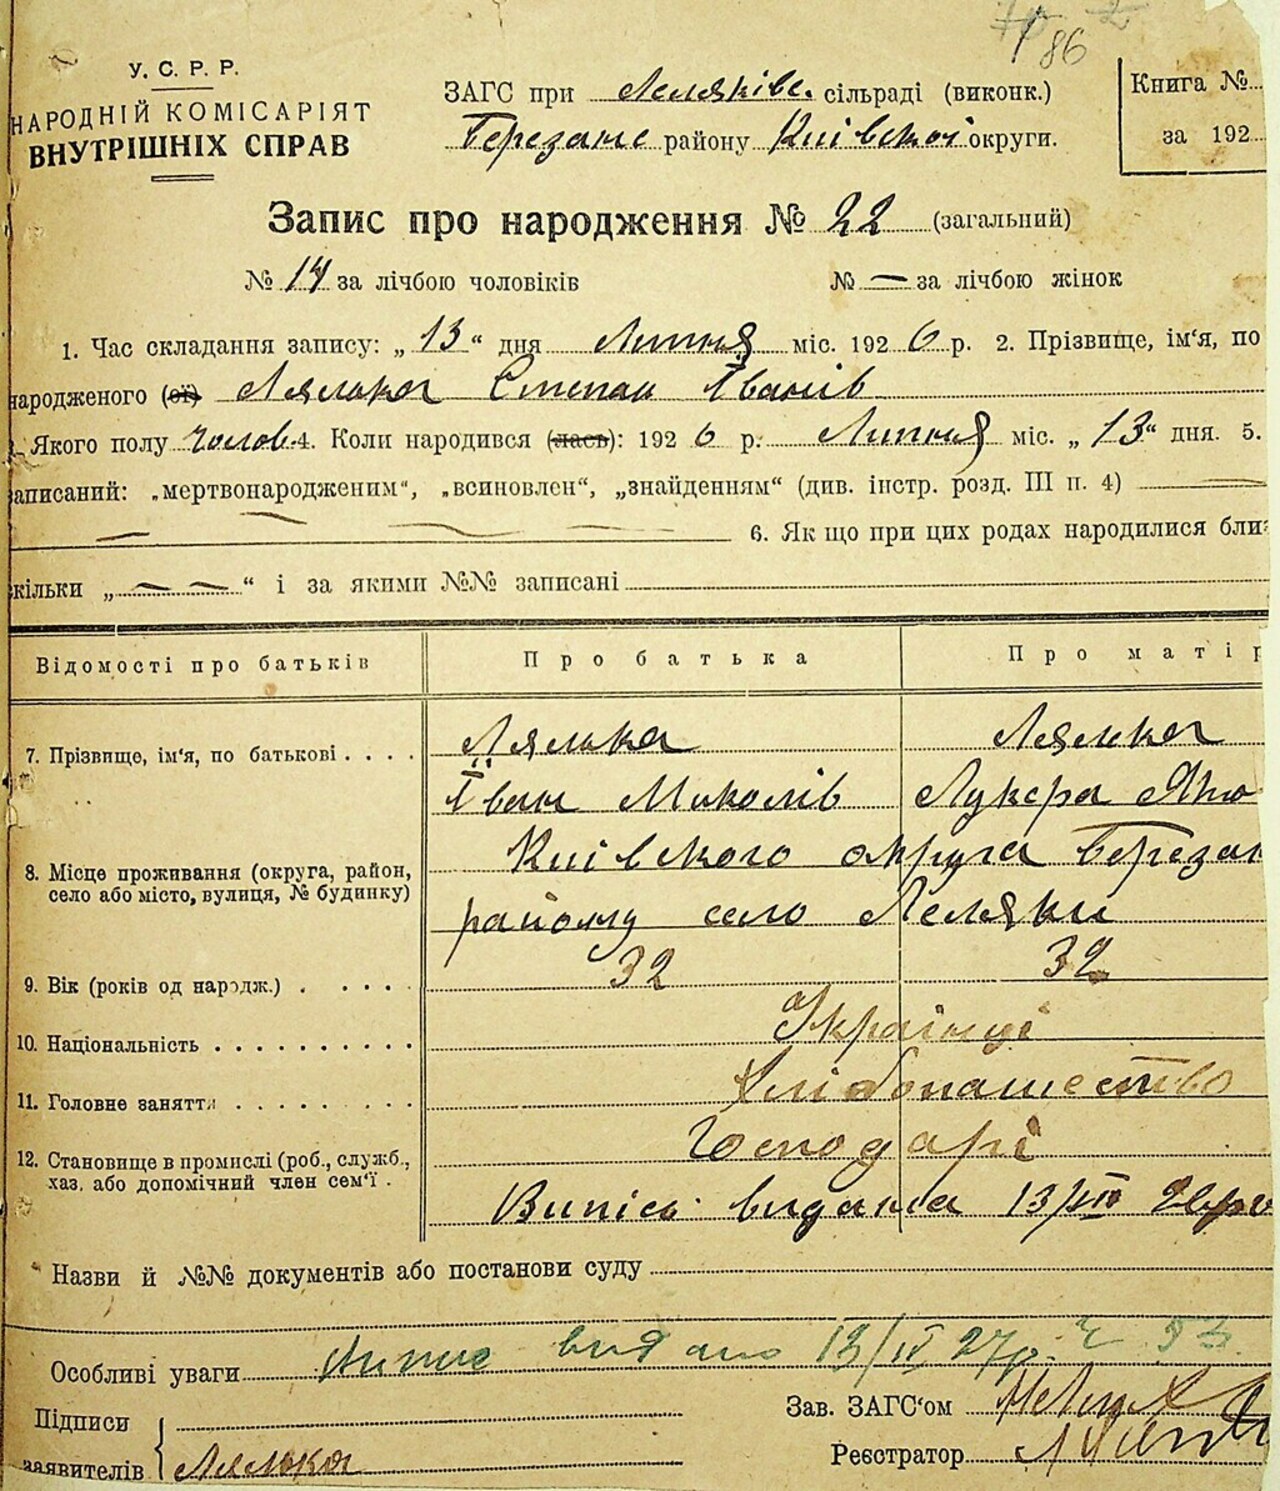 86
У. С. Р. Р.
НАРОДНІЙ КОМІСАРІЯТ
ВНУТРІШНІХ СПРАВ
ЗАГС при Леляківс. сільраді (виконк.)
Березанс районy Київської округи.
Книга №
за 192
Запис про народження № 22 (загальний)
№ 14 за лічбою чоловіків № — за лічбою жінок
1. Час складання запису: „ 13 “ дня Липня міс. 192 6 р. 2. Прізвище, ім'я, по
народженого (ої) Лялька Степан Іванів
Якого полу чолов. 4. Коли народився (лась): 192 6 р. Липня міс. „ 13 “ дня. 5.
записаний: „мертвонародженим“, „всиновлен“, „знайденням“ (див. інстр. розд. III п. 4)
6. Як що при цих родах народилися близ
скільки „ — — “ і за якими №№ записані
Відомості про батьків Про батька Про матір
7. Прізвище, ім'я, по батькові . . . . Лялька Лялька
Іван Миколів Лукера Яко
8. Місце проживання (округа, район, село або місто, вулиця, № будинку) Київского округа Березан
району село Леляки
9. Вік (років од народж.) . . . . . 32 32
10. Національність . . . . . . . . . . Українці
11. Головне заняття . . . . . . . . Хлібопашество
12. Становище в промислі (роб., служб., хаз. або допомічний член сем'ї . Господарі
Випись видана 13/VII
Назви й №№ документів або постанови суду
Особливі уваги Випис видано 13/IV 27р. 53
Підписи
заявителів Лялька
Зав. ЗАГС'ом
Реєстратор